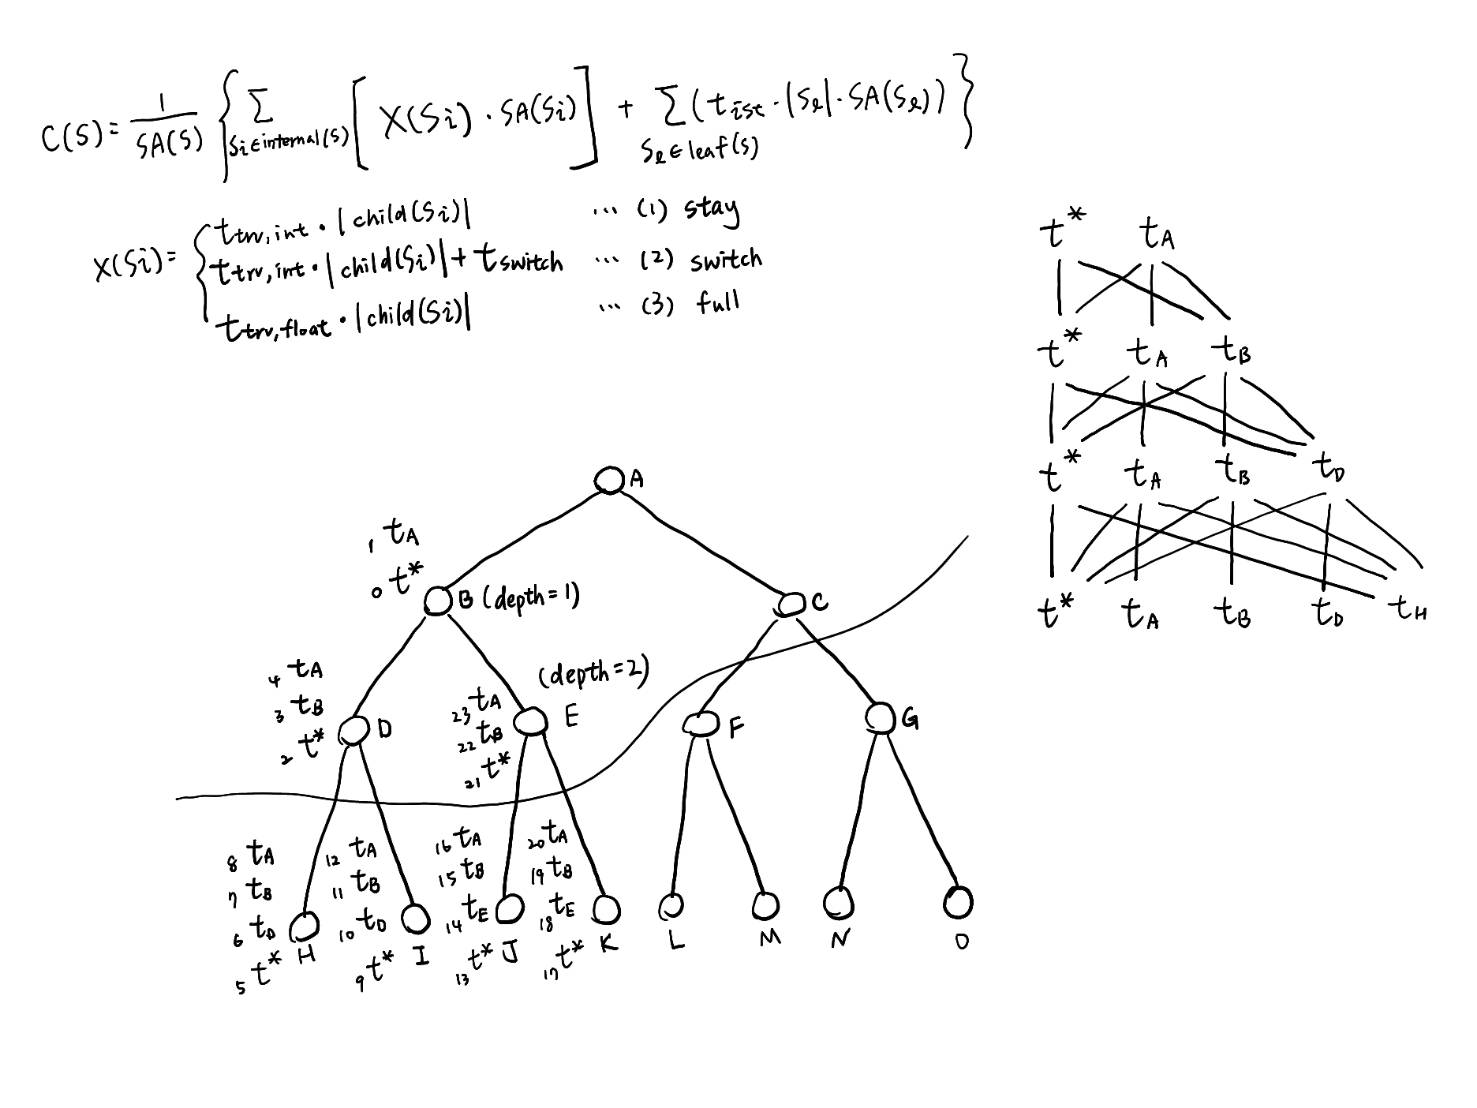 C(S) = 1/SA(S) { Σ_{Si∈internal(S)} [ X(Si) · SA(Si) ] + Σ_{Sℓ∈leaf(S)} (t_ist · |Sℓ| · SA(Sℓ)) }
X(Si) = { t_trv,int · |child(Si)| ... (1) stay
t_trv,int · |child(Si)| + t_switch ... (2) switch
t_trv,float · |child(Si)| ... (3) full
t* t_A
t* t_A t_B
t* t_A t_B t_D
t* t_A t_B t_D t_H
A
1 t_A
0 t*
B (depth=1)
C
4 t_A
3 t_B
2 t*
D
(depth=2)
23 t_A
22 t_B
21 t*
E
F
G
8 t_A
7 t_B
6 t_D
5 t*
H
12 t_A
11 t_B
10 t_D
9 t*
I
16 t_A
15 t_B
14 t_E
13 t*
J
20 t_A
19 t_B
18 t_E
17 t*
K
L
M
N
O